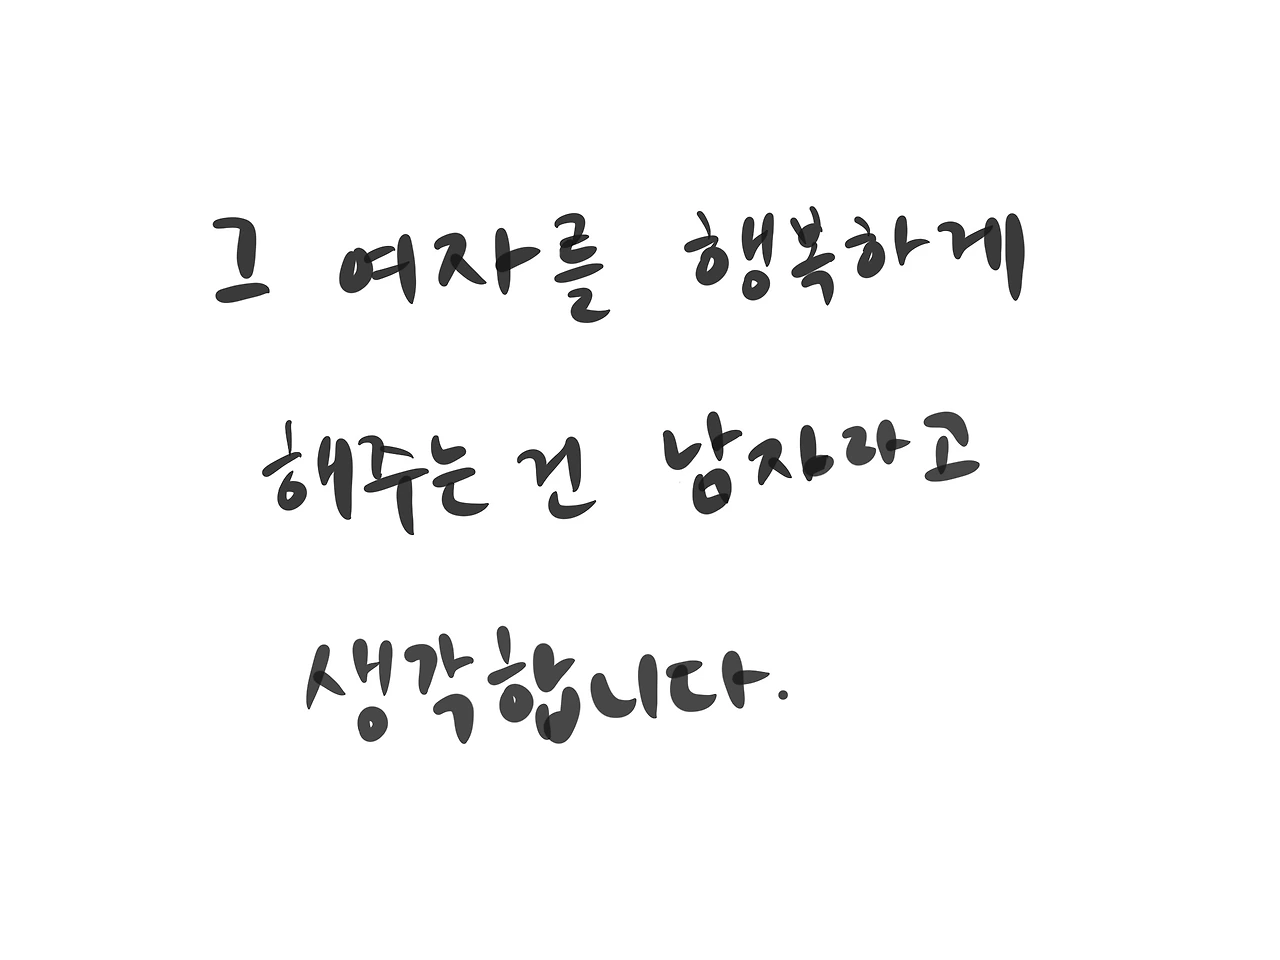 그 여자를 행복하게
해주는 건 남자라고
생각합니다.